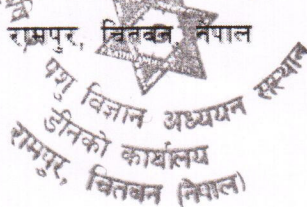 रामपुर, चितवन, नेपाल
पशु विज्ञान अध्ययन संस्थान
डीनको कार्यालय
रामपुर, चितवन (नेपाल)